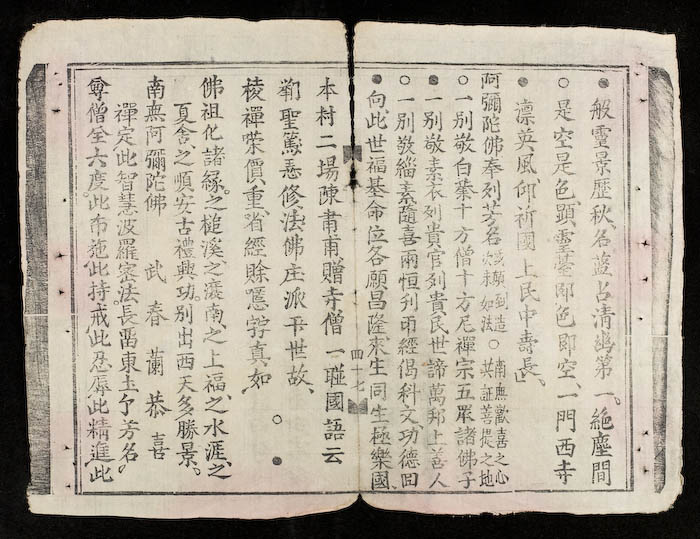 般靈景歷秋名藍占清幽第一絕塵間
○是空是色顕靈基即色即空一門西寺
凛英風仰祈國上民中壽長
阿彌陀佛奉列芳名 南無歡喜之心 共証菩提之地
○一別敬白藁十方僧十方尼禪宗五眾諸佛子
一別敬素衣列貴官列貴民世諦萬邦上善人
○一別敬緇素隨喜兩恒刋雨經偈科文功德回
向此世福基命位各願昌隆來生同生極樂國
四十七
本村二場陳甫贈寺僧一聯國語云
勸聖篤恶修法佛庄派平世故
棱禪嘹價重省經賒隱字真如
佛祖化諸緣之槌溪之瀀南之上福之水涯之
夏舍之順安古禮興功別出西天多勝景
南無阿彌陀佛 武春蘭恭喜
禪定此智慧波羅密法長畱東土亇芳名
尊僧全六度此布施此持戒此忍辱此精進此